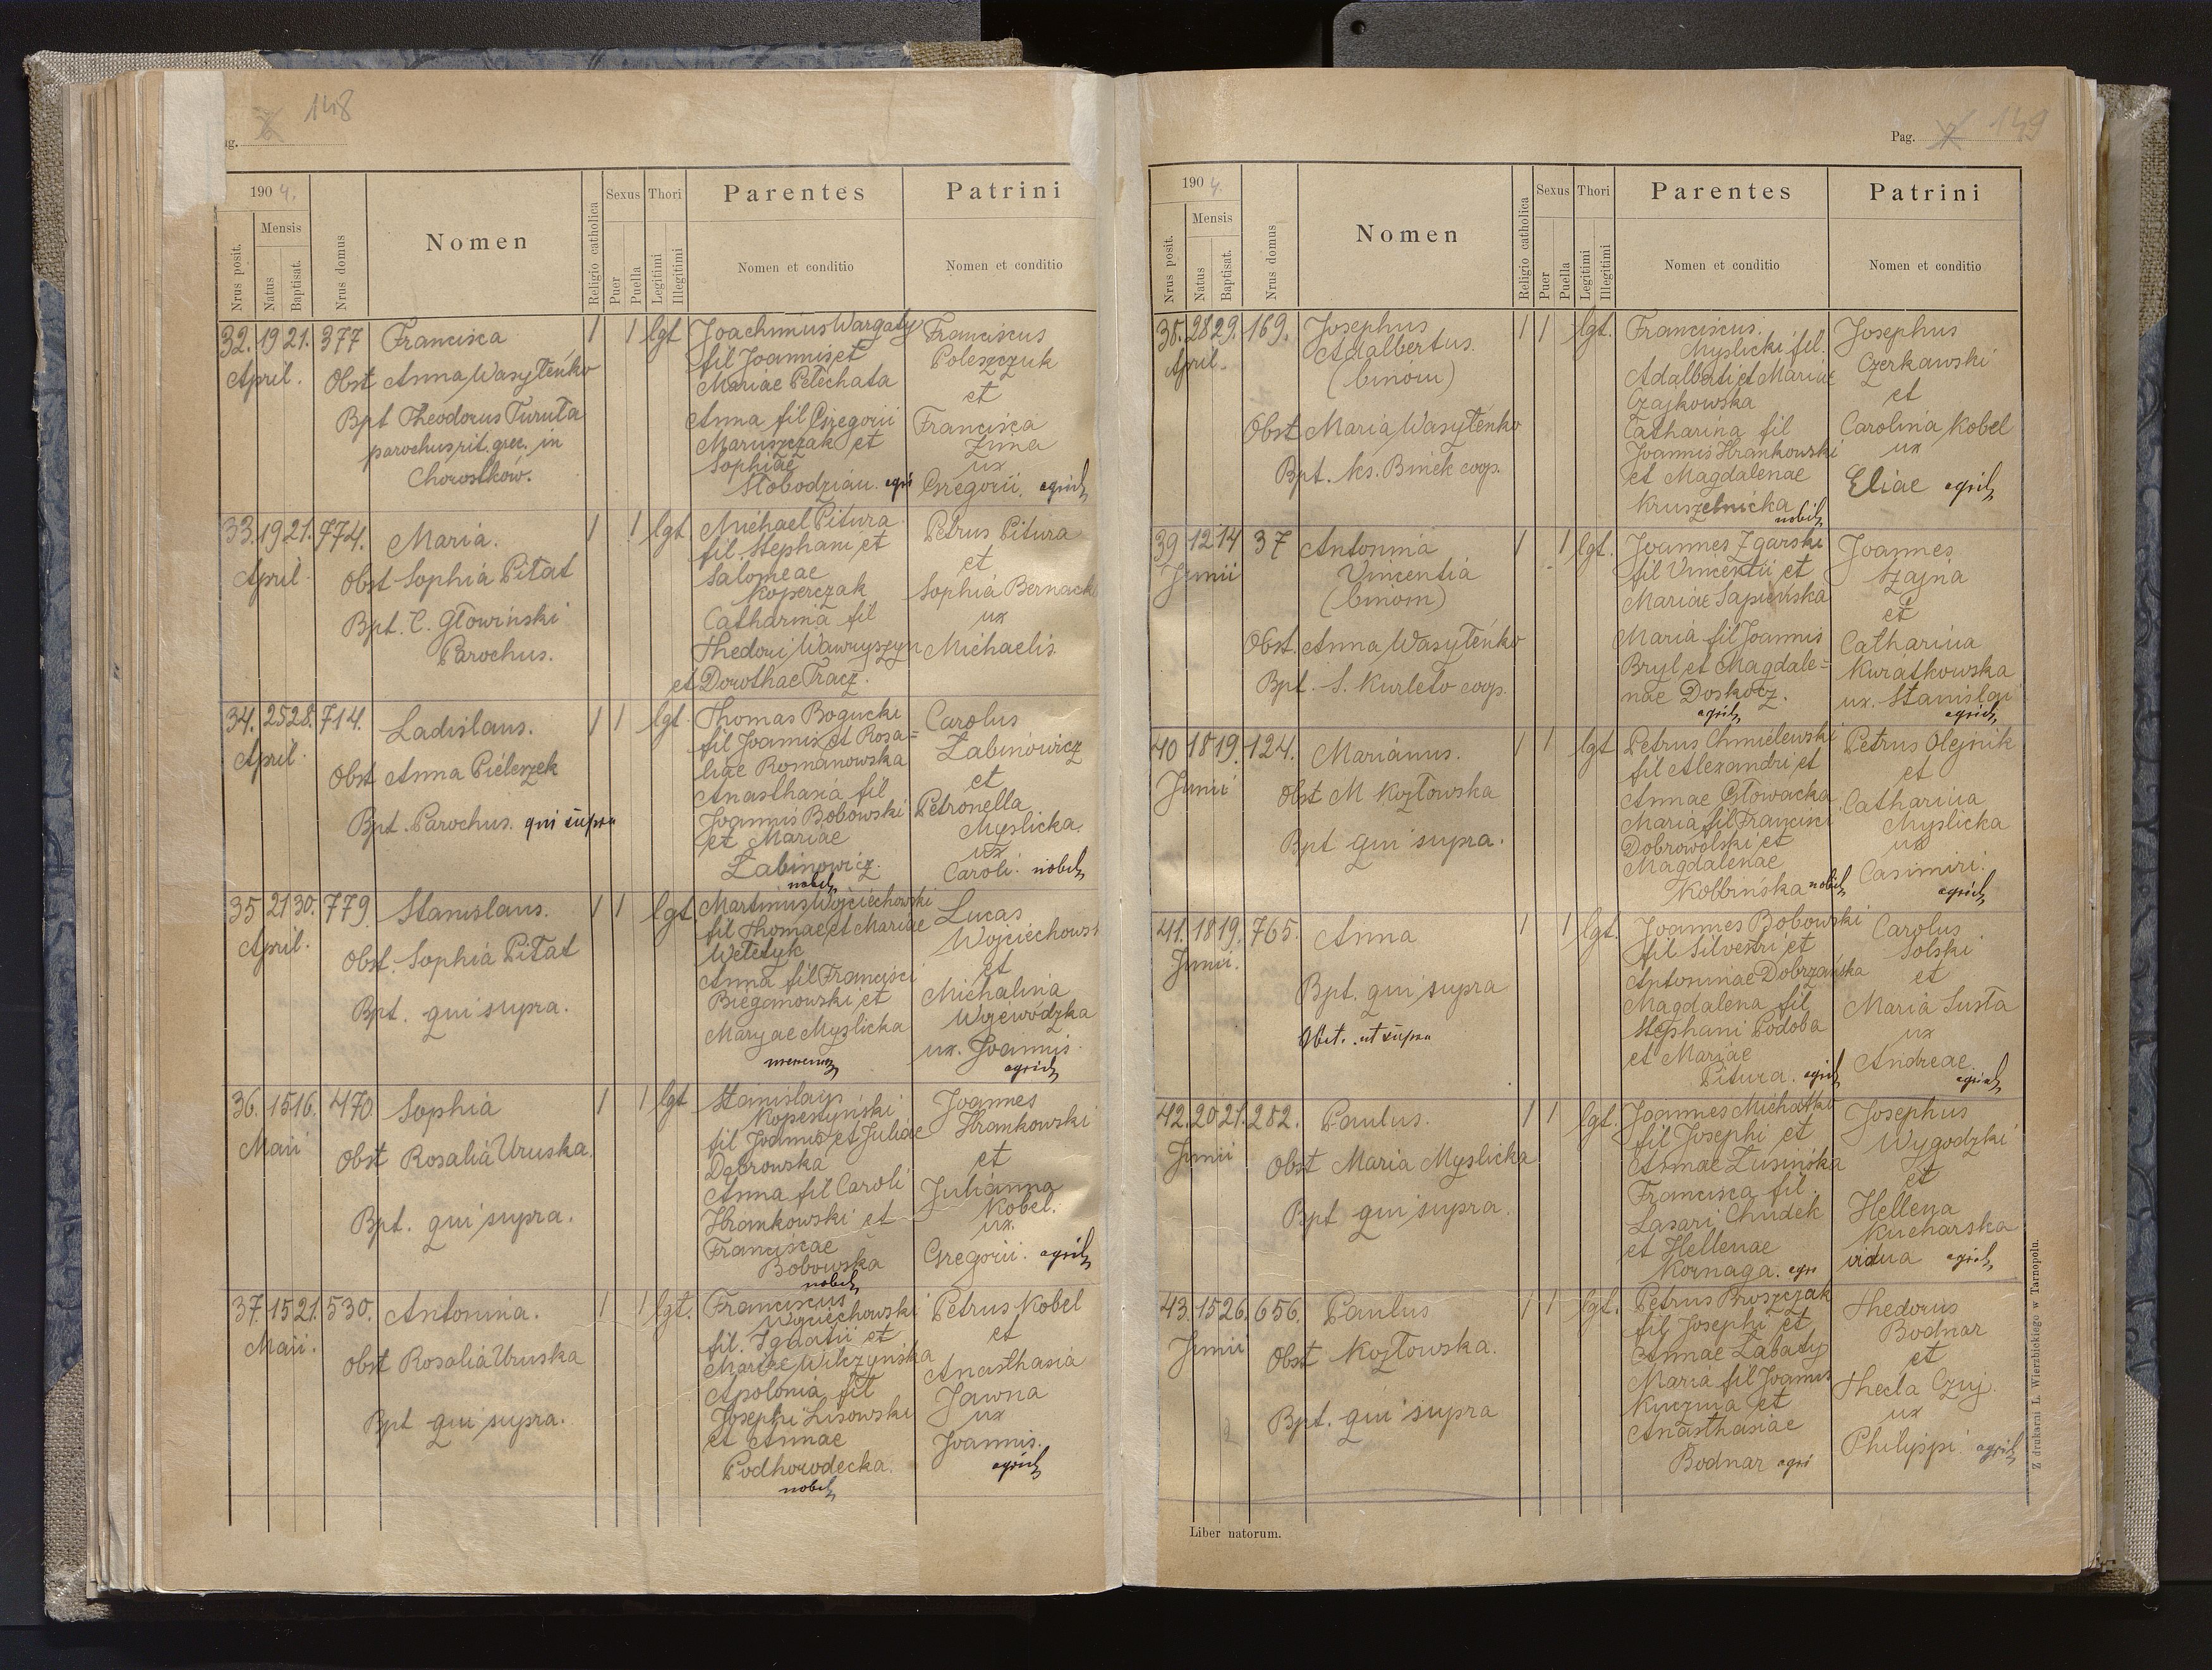 148
ag.
1904.
Nrus posit.
Mensis
Natus
Baptisat.
Nrus domus
Nomen
Religio catholica
Sexus
Puer
Puella
Thori
Legitimi
Illegitimi
Parentes
Nomen et conditio
Patrini
Nomen et conditio
32. 19 21. 377 Francisca 1 1 lgt
April. Obst Anna Wasyleńko
Bpt Theodorus Turuła
parochus rit. grec. in
Chorostków.
Joachimus Wargaty
fil Joannis et
Mariae Pelechata
Anna fil Gregorii
Maruszczak et
Sophiae
Słobodzian. agri
Franciscus
Poleszczuk
et
Francisca
Zima
ux
Gregorii. agric
33. 19 21. 774. Maria. 1 1 lgt
April. Obst Sophia Pitat
Bpt. C. Głowiński
Parochus.
Michael Pitura
fil Stephani et
Salomeae
Koperczak
Catharina fil
Thedori Wawryszyn
et Dorothae Tracz.
Petrus Pitura
et
Sophia Bernack
ux
Michaelis.
34. 25 28. 714. Ladislaus. 1 1 lgt.
April. Obst Anna Pieleszek
Bpt. Parochus. qui supra
Thomas Bogucki
fil Joannis et Rosa=
liae Romanowska
Anasthasia fil
Joannis Bobowski
et Mariae
Żabinowicz.
nobil
Carolus
Żabinowicz
et
Petronella
Myslicka.
ux
Caroli. nobil
35 21 30. 779. Stanislaus. 1 1 lgt
April. Obst. Sophia Pitat
Bpt. qui supra.
Martinus Wojciechowski
fil Thomae et Mariae
Wełetyk
Anna fil Francisci
Bieganowski et
Maryae Myslicka
Lucas
Wojciechowsk
et
Michalina
Wojewódzka
ux. Joannis.
agric
36. 15 16. 470. Sophia 1 1 lgt
Maii Obst Rosalia Uruska.
Bpt. qui supra.
Stanislaus
Kopestyński
fil Joannis et Juliae
Dąbrowska
Anna fil Caroli
Hrankowski et
Franciscae
Bobowska
nobil
Joannes
Hrankowski
et
Julianna
Kobel.
ux.
Gregorii. agric
37. 15 21. 530. Antonina. 1 1 lgt.
Maii. Obst Rosalia Uruska
Bpt qui supra.
Franciscus
Wojciechowski
fil. Ignatii et
Mariae Wilczyńska
Apolonia fil
Josephi Lisowski
et Annae
Podhorodecka.
nobil
Petrus Kobel
et
Anasthasia
Jawna
ux
Joannis.
agric
Pag. 149
1904.
Nrus posit.
Mensis
Natus
Baptisat.
Nrus domus
Nomen
Religio catholica
Sexus
Puer
Puella
Thori
Legitimi
Illegitimi
Parentes
Nomen et conditio
Patrini
Nomen et conditio
38. 28 29. 169. Josephus 1 1 lgt.
April. Adalbertus.
(binom)
Obst Maria Wasyleńko
Bpt. ks. Binek coop.
Franciscus.
Myslicki fil.
Adalberti et Mariae
Czajkowska
Catharina fil
Joannis Hrankowski
et Magdalenae
Kruszelnicka
nobil
Josephus
Czerkawski
et
Carolina Kobel
ux
Eliae agric
39 12 14 37 Antonina 1 1 lgt.
Junii Vincentia
(binom)
Obst. Anna Wasyleńko
Bpt. S. Kurleto coop.
Joannes Zgarski
fil Vincentii et
Mariae Sapieńska
Maria fil Joannis
Bryl et Magdale=
nae Doskocz.
agric
Joannes
Szajna
et
Catharina
Kwiatkowska
ux. Stanislai
agric
40 18 19. 124. Marianus. 1 1 lgt
Junii Obst M Kozłowska
Bpt qui supra.
Petrus Chmielewski
fil Alexandri et
Annae Głowacka
Maria fil Francisci
Dobrowolski et
Magdalenae
Kolbińska nobil
Petrus Olejnik
et
Catharina
Myslicka
ux
Casimiri.
agric
41. 18 19. 765. Anna 1 1 lgt.
Junii. Bpt. qui supra
Obst. ut supra
Joannes Bobowski
fil Silvestri et
Antoninae Dobrzańska
Magdalena fil
Stephani Podoba
et Mariae
Pitura. agric
Carolus
Solski
et
Maria Susta
ux
Andreae.
agric
42. 20 21. 282. Paulus. 1 1 lgt.
Junii Obst Maria Myslicka
Bpt qui supra.
Joannes Michałko
fil Josephi et
Annae Łusińska
Francisca fil.
Lasari Chudek
et Hellenae
Kornaga. agri
Josephus
Wygodzki
et
Hellena
Kucharska
vidua agric
43. 15 26. 656. Paulus 1 1 lgt.
Junii Obst Kozłowska.
Bpt. qui supra
Petrus Proszczak
fil Josephi et
Annae Łabaty
Maria fil Joannis
Kuczma et
Anasthasiae
Bodnar agri
Thedorus
Bodnar
et
Thecla Czuj.
ux
Philippi. agric
Liber natorum.
Z drukarni L. Wierzbickiego w Tarnopolu.